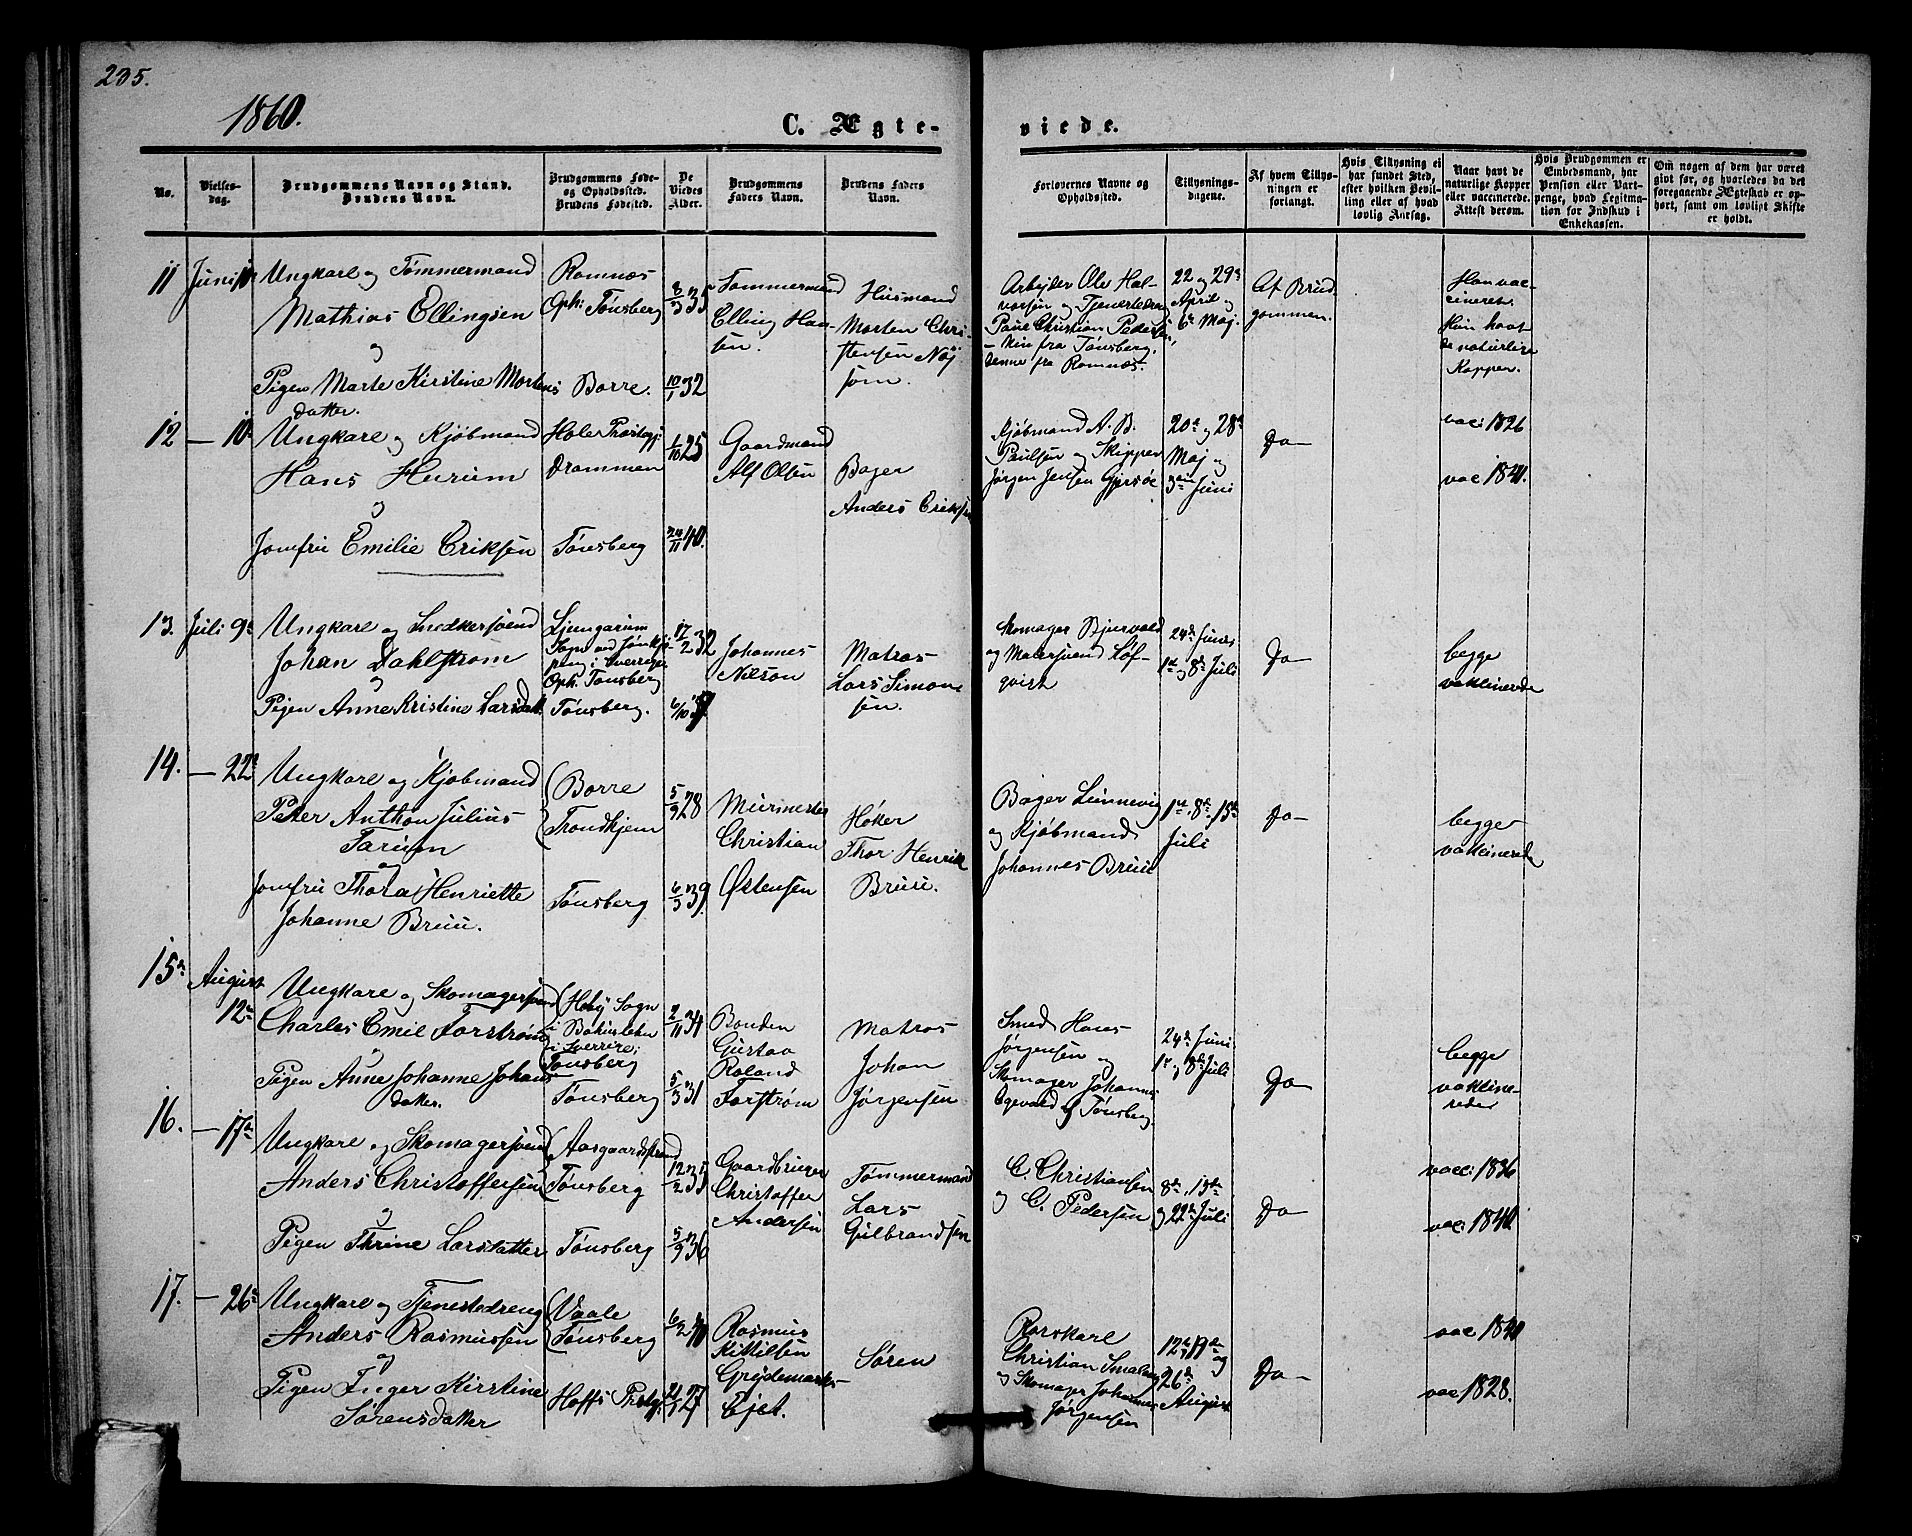 235.
1860.
C. Ægte-
viede.
No.
Vielses-
dag.
Brudgommens Navn og Stand.
Brudens Navn.
Brudgommens Føde-
og Opholdssted.
Brudens Fødested.
De
Viedes
Alder.
Brudgommens
Faders Navn.
Brudens Faders
Navn.
Forlovernes Navne og
Opholdssted.
Tillysnings-
dagene.
Af hvem Tillys-
ningen er
forlangt.
Hvis Tillysning ei
har fundet Sted,
efter hvilken Bevil-
ling eller af hvad
lovlig Aarsag.
Naar havt de
naturlige Kopper
eller vaccinerede.
Attest derom.
Hvis Brudgommen er
Embedsmand, har
Pension eller Vart-
penge, hvad Legitma-
tion for Indskud i
Enkekassen.
Om nogen af dem har været
gift før, og hvorledes da det
foregaaende Ægteskab er op-
hørt, samt om lovligt Skifte
er holdt.
11 Juni 10
Ungkarl og Tømmermand
Mathias Ellingsen
og
Pigen Marte Kirstine Mortens
datter.
Ramnæs
Oph: Tønsberg
Borre.
8/3 35
10/1 32
Tømmermand
Elling Han-
sen.
Husmand
Morten Chri-
stensen Nøj
som.
Arbejder Ole Hal-
vorsen og Tjenestedreng
Paul Christian Pedersen,
- hin fra Tønsberg,
denne fra Ramnæs.
22 og 29de
April og
6te Maj.
Af Brud
gommen.
Han vac-
cineret.
Hun havt
de naturlige
Kopper.
12 — 10
Ungkarl og Kjøbmand
Hans Hurum
og
Jomfru Emilie Eriksen
Hole Præstegj:
Drammen
Tønsberg
1/10 25
24/11 40.
Gaardmand
Alf Olsen
Bager
Anders Eriksen
Kjøbmand A. B.
Paulsen og Skipper
Jørgen Jensen Gjersøe
20de og 28de
Maj og
3die Juni
Do—
vac: 1826
vac 1841.
13. Juli 9de
Ungkarl og Snedkersvend
Johan Dahlstrøm
og
Pigen Anne Kristine Larsdatt.
Ljungarum
Sogn ved Jønkjø-
ping i Sverrige
Oph: Tønsberg
Tønsberg.
17/2 32
6/10 37.
Johannes
Nilson
Matros
Lars Simon
sen.
Skomager Bjurvald
og Malersvend Løf-
qvist
24de Juni
1ste og 8de Juli
Do—
begge
vaklinerede
14. — 22de
Ungkarl og Kjøbmand
Peter Anthon Julius
Farum
og
Jomfru Thora Henriette
Johanne Bruu.
Borre
Trondhjem
Tønsberg
5/9 28
6/3 39.
Murmester
Christian
Østensen
Høker
Thor Henrik
Bruu.
Bager Linnevig
og Kjøbmand
Johannes Bruu
1ste, 8de, 15de
Juli
Do—
begge
vaklinerede
15de August
12te
Ungkarl og Skomagersvend
Charles Emil Forstrøm
og
Pigen Anne Johanne Johans
datter.
Heby Sogn
i Bahuslehn
i Sverrige;
Tønsberg
Tønsberg
2/11 34
5/3 31
Bonden
Gustav
Roland
Forstrøm
Matros
Johan
Jørgensen
Smed Hans
Jørgensen og
Skomager Johannes
Egevald af Tønsberg
24de Juni
1ste og 8de Juli
Do—
begge
vakline-
rede
16. — 17de
Ungkarl og Skomagersvend
Anders Christoffersen
og
Pigen Thrine Larsdatter
Aasgaardstrand
Tønsberg
Tønsberg
12/2 35
5/9 36
Gaardbruger
Christoffer
Andersen
Tømmermand
Lars
Gulbrandsen
C. Christiansen
og C. Pedersen
8de, 15de
og 22de Juli
Do—
vac: 1836
vac: 1840
17. — 26de
Ungkarl og Tjenestedreng
Anders Rasmussen
og
Pigen Inger Kirstine
Sørensdatter
Vaale
Tønsberg
Hoffs Præstgj:
6/2 40
21/1 27
Rasmus
Kittilsen
Grødemarks
Ejet.
Søren
Rorskarl
Christian Smaling
og Skomager Johannes
Jørgensen
12te, 19de og
26de
August
Do—
vac 1840
vac 1828.